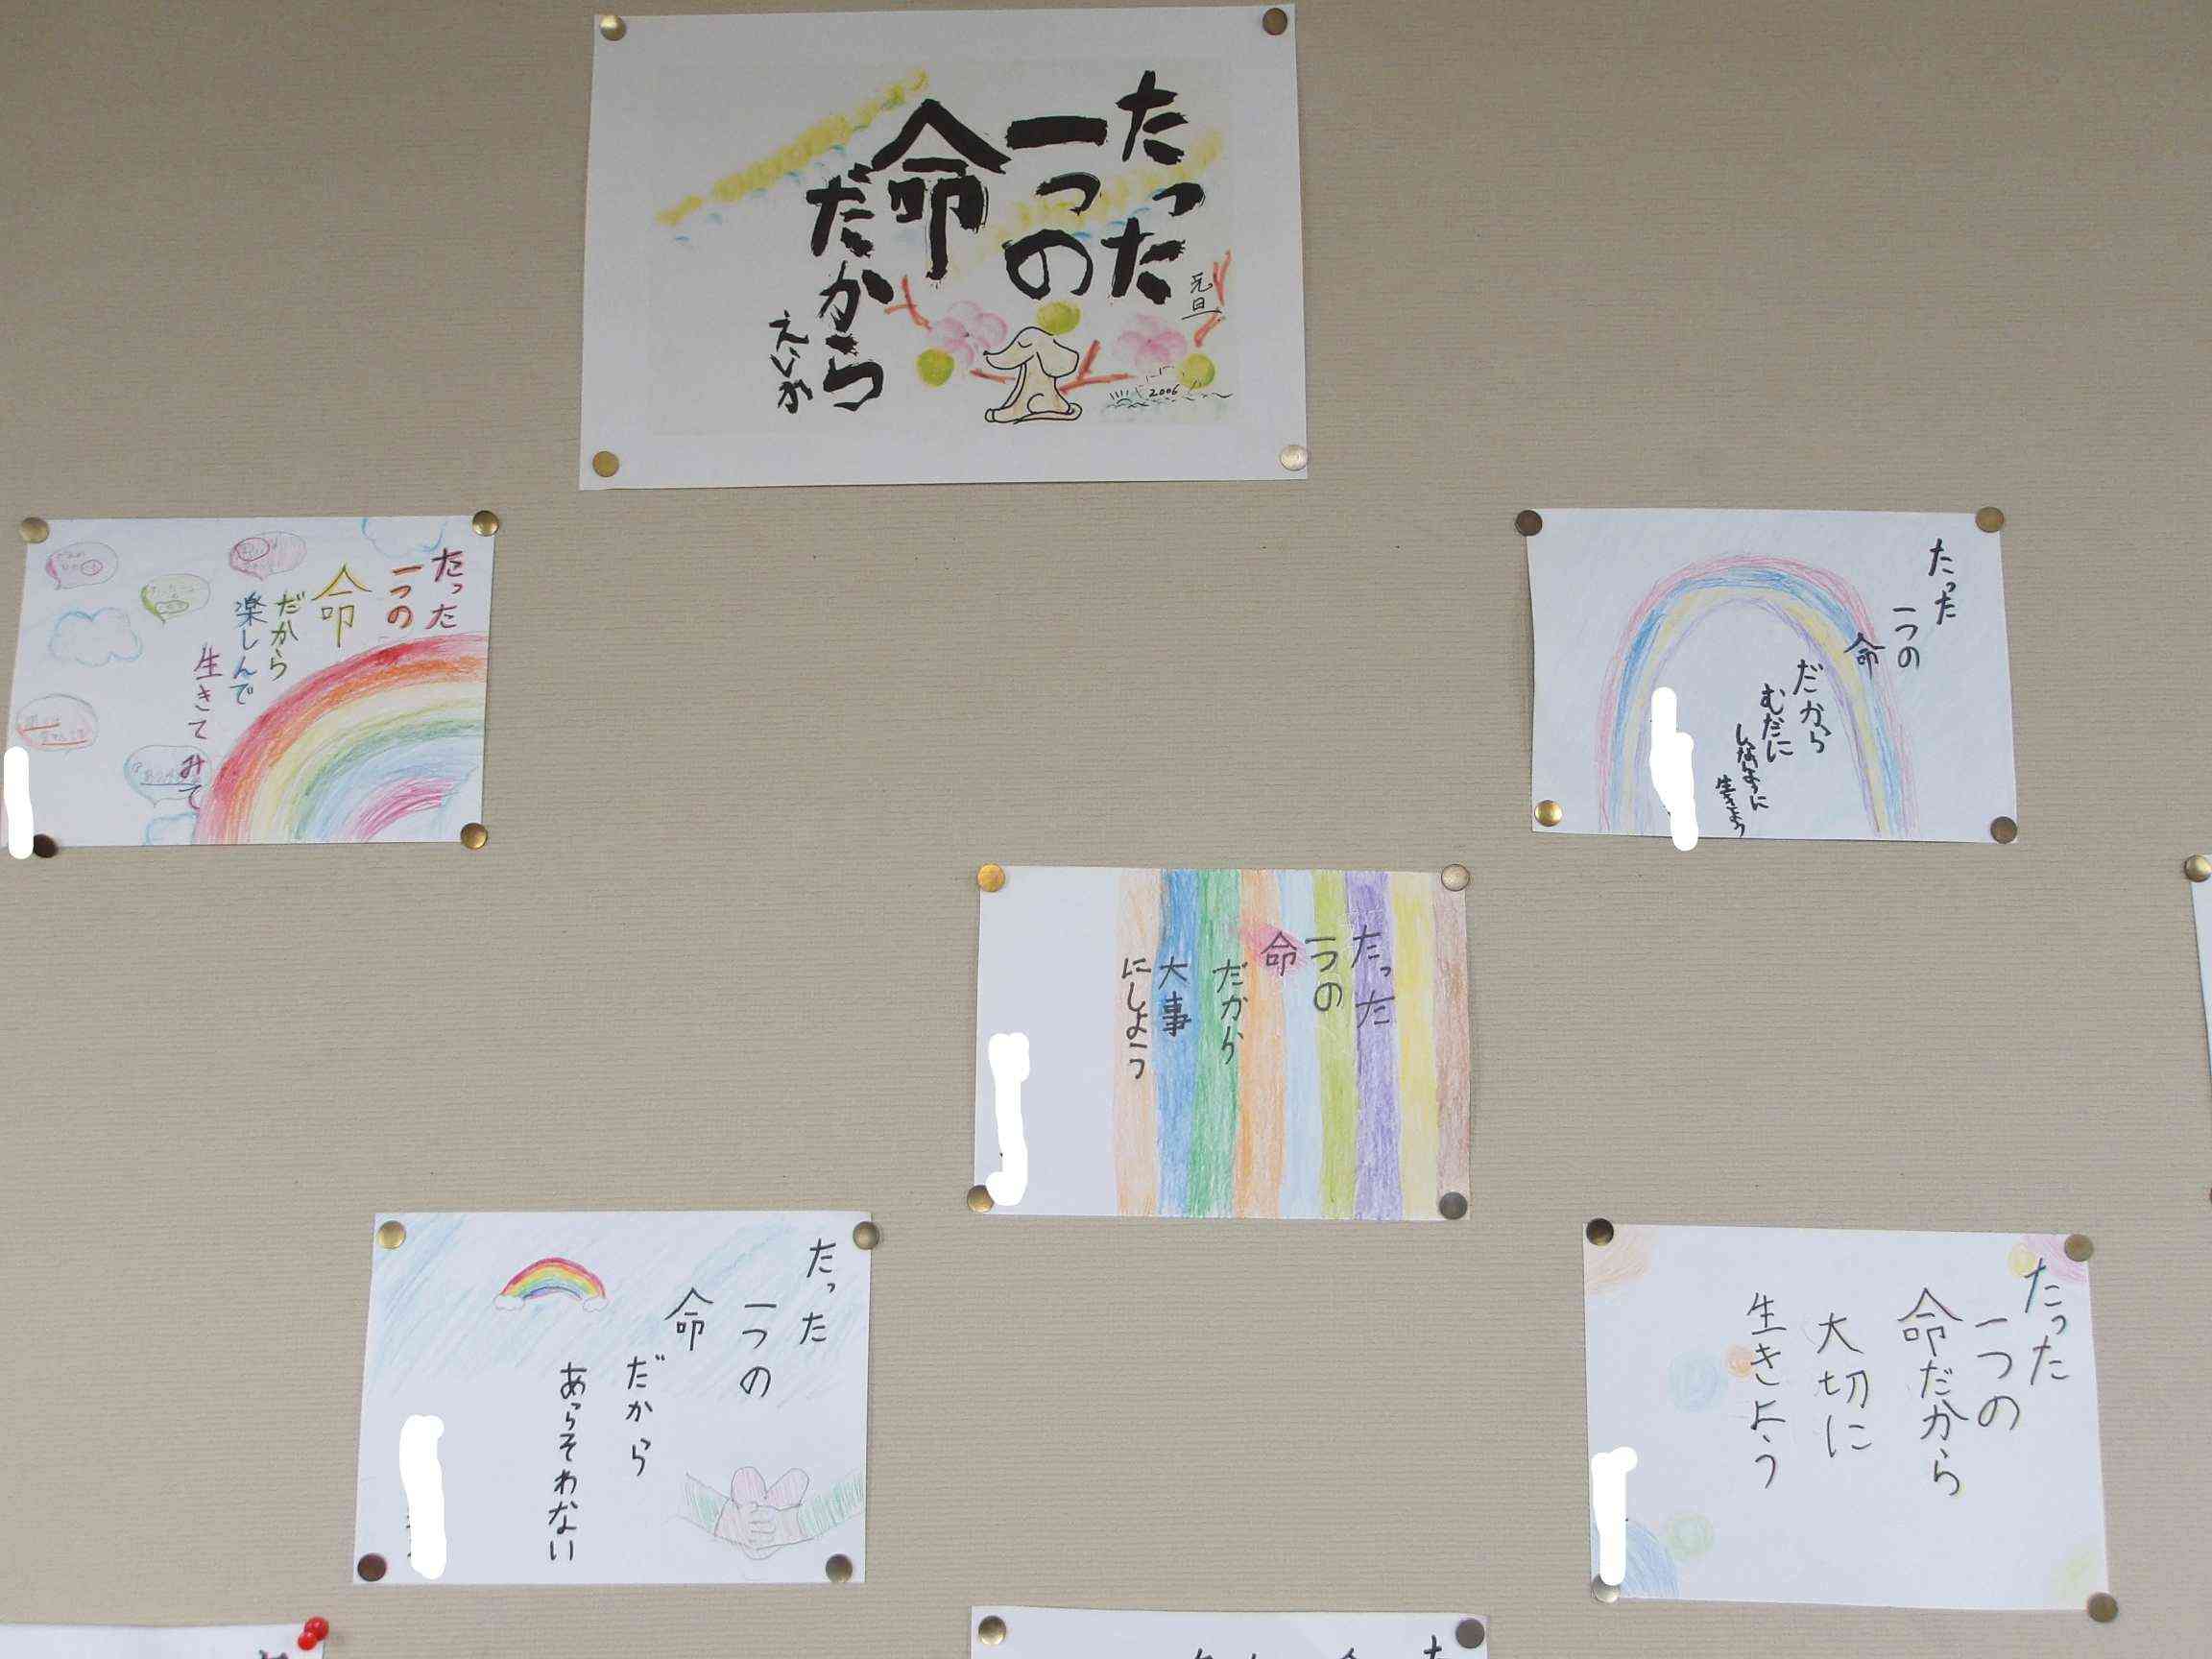 たった
一つの
命
だから
えいか
元旦
2006
たった
一つの
命
だから
楽しんで
生きてみて
たった
一つの
命
だから
むだに
しないように
生きよう
たった
一つの
命
だから
大事
にしよう
たった
一つの
命
だから
あらそわない
たった
一つの
命だから
大切に
生きよう